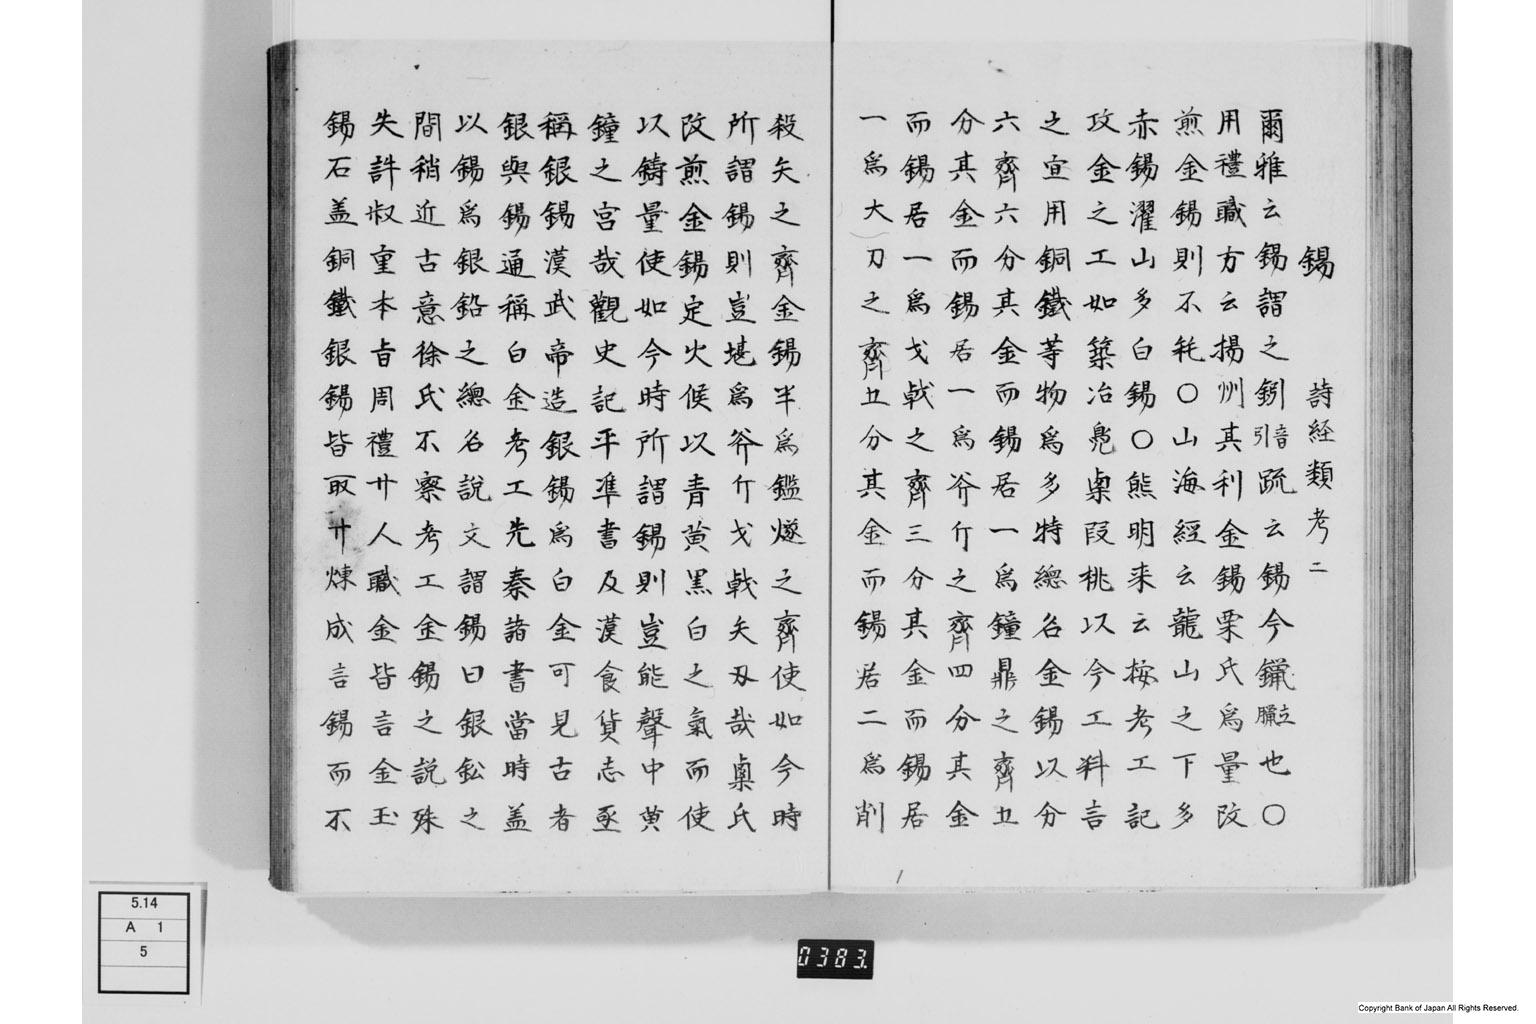 錫　詩経類考二
爾雅云錫謂之鈏音引疏云錫今鑞音臘也〇
用禮職方云揚州其利金錫栗氏爲量改
煎金錫則不耗〇山海經云龍山之下多
赤錫濯山多白錫〇熊明来云按考工記
攻金之工如築冶鳧㮚段桃以今工料言
之宜用銅鐵等物爲多特總名金錫以分
六齊六分其金而錫居一爲鐘鼎之齊五
分其金而錫居一爲斧斤之齊四分其金
而錫居一爲戈戟之齊三分其金而錫居
一爲大刀之齊五分其金而錫居二爲削
殺矢之齊金錫半爲鑑燧之齊使如今時
所謂錫則豈堪爲斧斤戈戟矢刄哉㮚氏
改煎金錫定火候以青黄黒白之氣而使
以鑄量使如今時所謂錫則豈能聲中黄
鐘之宮哉觀史記平準書及漢食貨志亟
稱銀錫漢武帝造銀錫爲白金可見古者
銀與錫通稱白金考工先秦諸書當時盖
以錫爲銀鉛之總名說文謂錫曰銀鈆之
間稍近古意徐氏不察考工金錫之說殊
失許叔重本㫖周禮廾人職金皆言金玉
錫石盖銅鐵銀錫皆取廾煉成言錫而不
5.14
A 1
5
0383.
Copyright Bank of Japan All Rights Reserved.